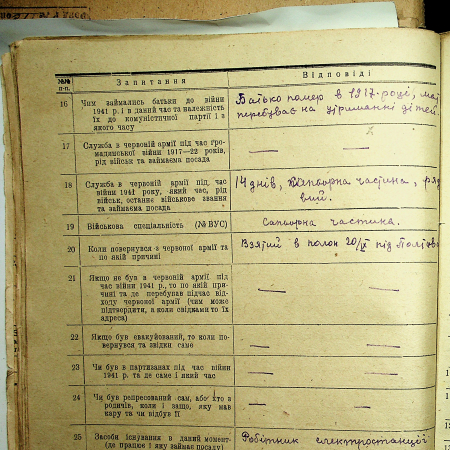 №№
п-п.
Запитання
Відповіді
16
Чим займались батьки до війни
1941 р. і в даний час та належність
їх до комуністичної партії і з
якого часу
Батько помер в 1917 році, мати
перебуває на утриманні дітей.
17
Служба в червоній армії під час гро-
мадянської війни 1917—22 років,
рід військ та займаєма посада
— —
18
Служба в червоній армії під час
війни 1941 року, який час, рід
військ, останнє військове звання
та займаєма посада
14 днів, сапьорна частина, ряд
вий.
19
Військова спеціальність (№ ВУС)
Сапьорна частина.
20
Коли повернувся з червоної армії та
по якій причині
Взятий в полон 20/ІХ під Полтавою
21
Якщо не був в червоній армії під
час війни 1941 р., то по якій при-
чині та де перебував підчас від-
ходу червоної армії (чим може
підтвердити, а коли свідками то їх
адреса)
— —
22
Якщо був евакуйований, то коли по-
вернувся та звідки саме
— —
23
Чи був в партизанах під час війни
1941 р. та де саме і який час
— —
24
Чи був репресований сам, або хто з
родичів, коли і защо, яку мав
кару та чи відбув її
— —
25
Засоби існування в даний момент
(де працює і яку займає посаду)
Робітник електростанції